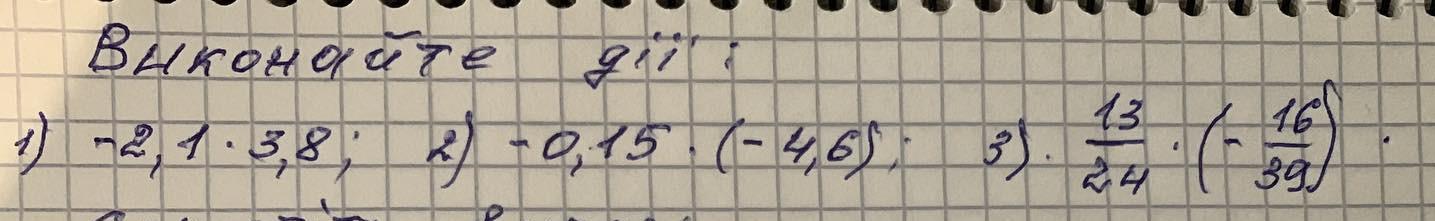 Виконайте дії:
1) -2,1 · 3,8; 2) -0,15 · (-4,6); 3). 13/24 · (-16/39) .